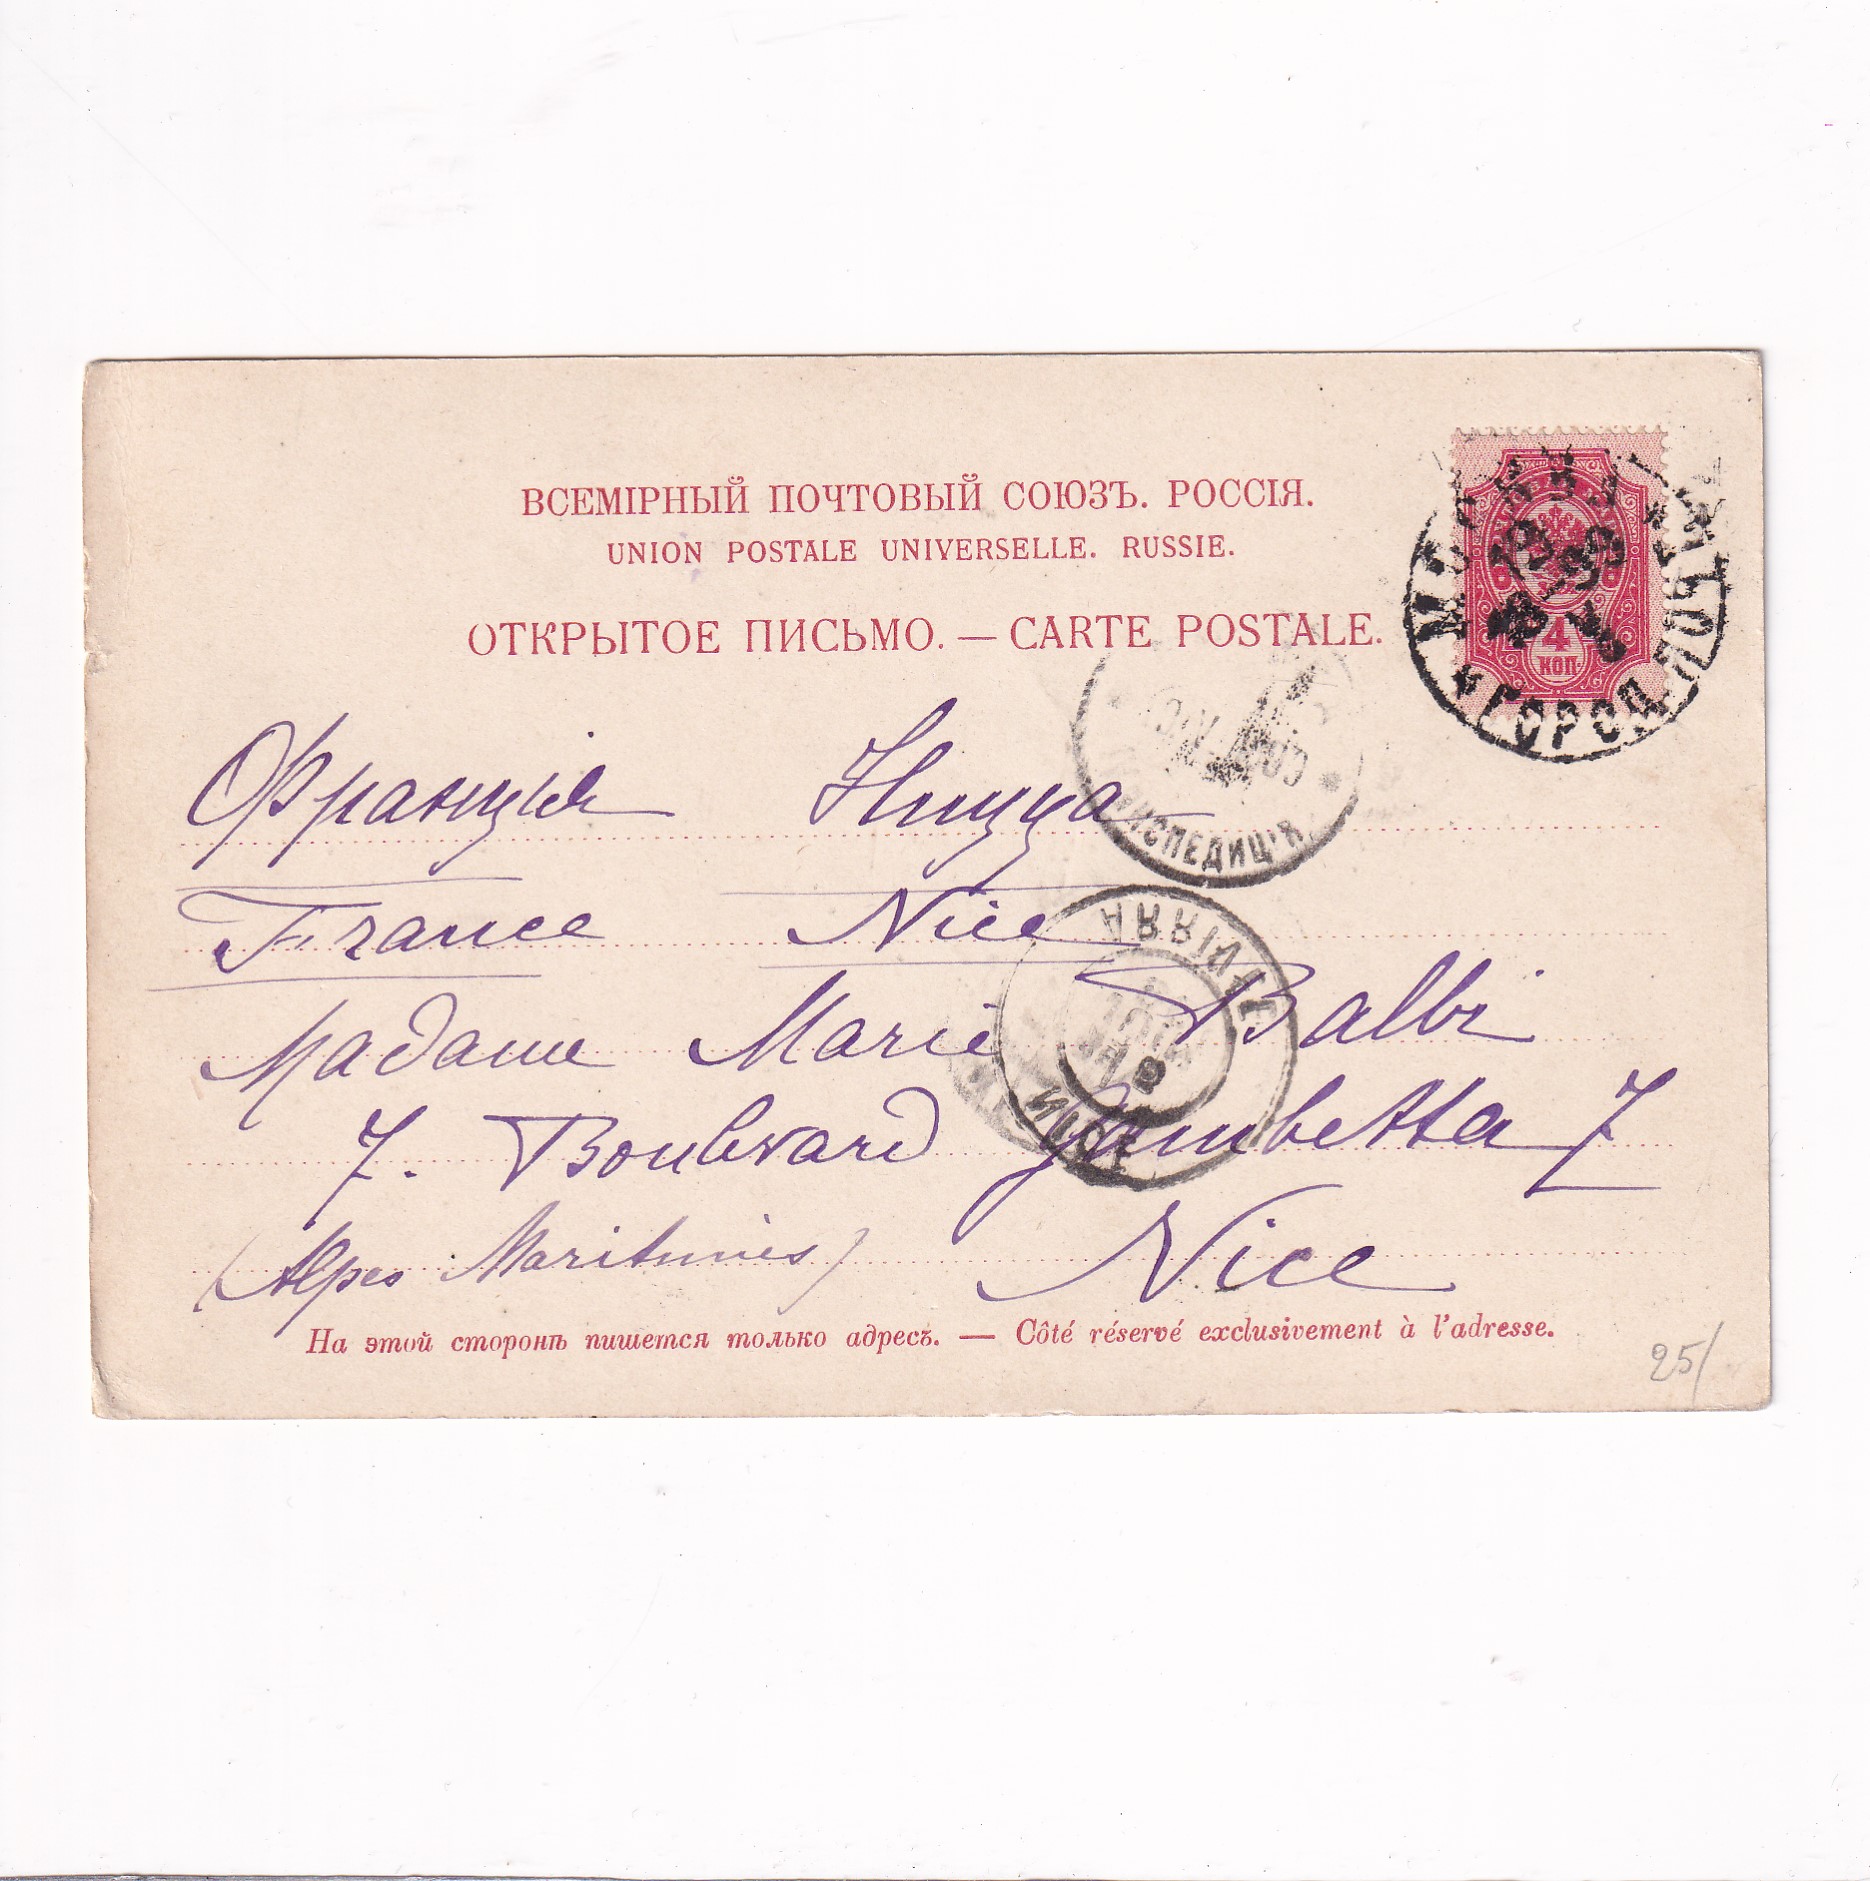 ВСЕМІРНЫЙ ПОЧТОВЫЙ СОЮЗЪ. РОССІЯ.
UNION POSTALE UNIVERSELLE. RUSSIE.
ОТКРЫТОЕ ПИСЬМО. — CARTE POSTALE.
4
КОП
МОСКВА
ГОРОД.
Франція Ницца
ЭКСПЕДИЦІЯ
France Nice
ARRIVEE
Madame Marie Balbi
NICE
7. Boulevard Gambetta 7
(Alpes Maritimes) Nice
На этой сторонѣ пишется только адресъ. — Côté réservé exclusivement à l'adresse.
25/